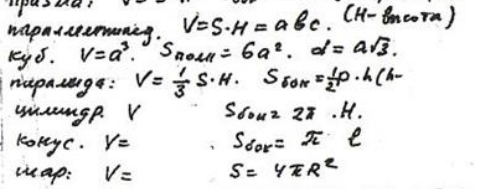 призма:
параллелепипед. V=S·H = abc. (H- высота)
куб. V=a³. Sполн = 6a². d = a√3.
пирамида: V = 1/3 S·H. Sбок = 1/2 p·h (h-
цилиндр. V Sбок = 2π .H.
конус. V= . Sбок = π l
шар: V= S = 4πR²